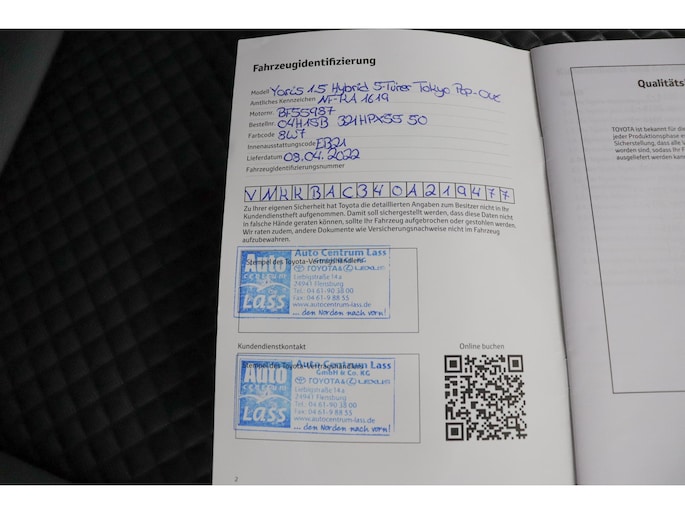 Fahrzeugidentifizierung
Modell Yaris 1.5 Hybrid 5-Türer Tokyo Pop-Out
Amtliches Kennzeichen NF-RA 1619
Motornr. BF55987
Bestellnr. 04H15B 321HPX55 50
Farbcode 8W7
Innenausstattungscode EB21
Lieferdatum 08.04.2022
Fahrzeugidentifizierungsnummer
VNKKBAC340A219477
Zu Ihrer eigenen Sicherheit hat Toyota die detaillierten Angaben zum Besitzer nicht in Ihr
Kundendienstheft aufgenommen. Damit soll sichergestellt werden, dass diese Daten nicht
in falsche Hände geraten können, sollte Ihr Fahrzeug aufgebrochen oder gestohlen werden.
Wir raten zudem, andere Dokumente wie Versicherungsnachweise nicht im Fahrzeug
aufzubewahren.
Stempel des Toyota-Vertragshändlers
Auto
CENTRUM
Lass
Auto Centrum Lass
GmbH & Co. KG
TOYOTA & LEXUS
Liebigstraße 14a
24941 Flensburg
Tel.: 04 61-90 38 00
Fax: 04 61-9 88 55
www.autocentrum-lass.de
... den Norden nach vorn!
Kundendienstkontakt
Online buchen
Stempel des Toyota-Vertragshändlers
Auto
CENTRUM
Lass
Auto Centrum Lass
GmbH & Co. KG
TOYOTA & LEXUS
Liebigstraße 14a
24941 Flensburg
Tel.: 04 61-90 38 00
Fax: 04 61-9 88 55
www.autocentrum-lass.de
... den Norden nach vorn!
2
Qualitäts
TOYOTA ist bekannt für die
jeder Produktionsphase e
Sicherstellung, dass alle V
worden sind, sodass Ihr F
ausgeliefert werden kann